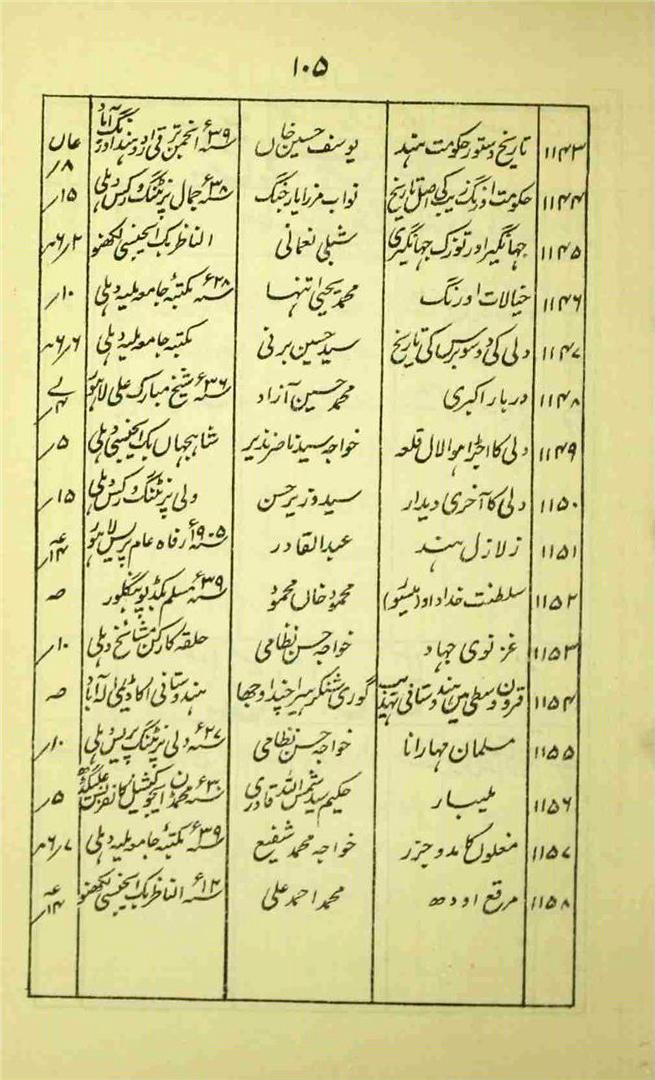 ۱۰۵
۱۱۴۳ تاریخ دستور حکومت ہند یوسف حسین خاں ۳۹ء انجمن ترقی اردو ہند اورنگ آباد
۱۱۴۴ حکومت اورنگ زیب کی اصل تاریخ نواب مرزا یار جنگ ۳۸ء جمال پرنٹنگ ورکس دہلی ۱۵؍
۱۱۴۵ جہانگیر اور توزک جہانگیری شبلی نعمانی الناظر بک ایجنسی لکھنو ۲؍۶
۱۱۴۶ خیالات اورنگ محمد یحییٰ تنہا ۲۸ء مکتبۂ جامعہ ملیہ دہلی ۱۰؍
۱۱۴۷ دلی کی دو سو برس کی تاریخ سید حسین برنی مکتبہ جامعہ ملیہ دہلی ۶؍۶
۱۱۴۸ دربار اکبری محمد حسین آزاد ۳۶ء شیخ مبارک علی لاہور ۴؍
۱۱۴۹ دلی کا اجڑا ہوا لال قلعہ خواجہ سید ناصر نذیر شاہجہاں بک ایجنسی دہلی ۵؍
۱۱۵۰ دلی کا آخری دیدار سید وزیر حسن ولی پرنٹنگ ورکس دہلی ۱۵؍
۱۱۵۱ زلازل ہند عبدالقادر ۱۹۰۵ء رفاہ عام پریس لاہور ۱۴؍
۱۱۵۲ سلطنت خداداد (میسور) محمود خاں محمود ۳۹ء مسلم بکڈپو بنگلور
۱۱۵۳ غزنوی جہاد خواجہ حسن نظامی حلقہ کارکن مشائخ دہلی ۱۰؍
۱۱۵۴ قرون وسطیٰ میں ہندوستانی تہذیب گوری شنکر ہیرا چند اوجھا ہندوستانی اکاڈیمی الہ آباد
۱۱۵۵ مسلمان مہارانا خواجہ حسن نظامی ۲۷ء دلی پرنٹنگ پریس دہلی ۱۰؍
۱۱۵۶ ملیبار حکیم سید شمس اللہ قادری ۳۰ء محمڈن ایجوکیشنل کانفرنس علیگڈھ ۵؍
۱۱۵۷ مغلوں کا مدوجزر خواجہ محمد شفیع ۳۹ء مکتبۂ جامعہ ملیہ دہلی ۷؍۶
۱۱۵۸ مرقع اودھ محمد احمد علی ۱۲ء الناظر بک ایجنسی لکھنو ۱۴؍